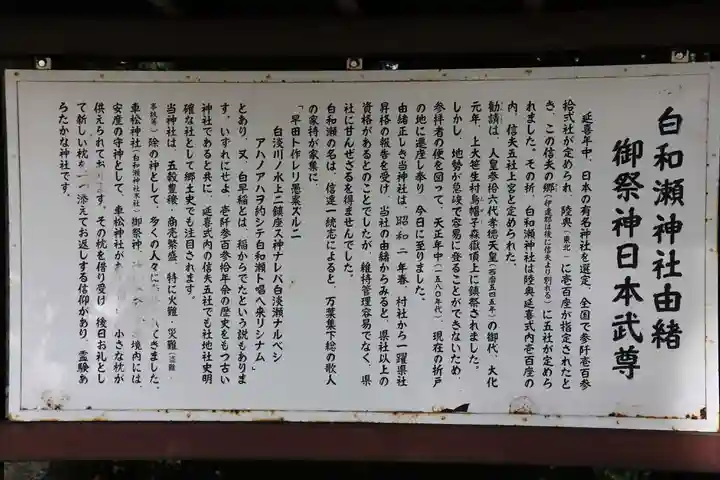 白和瀬神社由緒
御祭神日本武尊
延喜年中、日本の有名神社を選定、全国で参阡壱百参
拾弐社が定められ、陸奥(東北)に壱百座が指定されたと
き、この信夫の郷(伊達郡は後に信夫より別れる)に五社が定めら
れました。その折、白和瀬神社は陸奥延喜式内壱百座の
内、信夫五社上宮と定められた。
勧請は、人皇参拾六代孝徳天皇(西暦五四五年)の御代、大化
元年、上大笹生村烏帽子森嶽頂上に鎮祭されました。
しかし、地勢が急竣で容易に登ることができないため、
参拝者の便を図って、天正年中(一五八〇年代)、現在の折戸
の地に遷座し奉り、今日に至りました。
由緒正しき当神社は、昭和二年春、村社から一躍県社
昇格の報告を受け、当社の由緒からみると、県社以上の
資格があるとのことでしたが、維持管理容易でなく、県
社に甘んぜざるを得ませんでした。
白和瀬の名は、信達一統志によると、万葉集下総の歌人
の家持が家集に、
「早田卜作レリ愚案ズルニ
白淡川ノ水上ニ鎮座ス神ナレバ白淡瀬ナルベシ
アハノアハヲ約シテ白和瀬卜唱へ来リシナム」
とあり、又、白早稲とは、稲からでたという説もありま
す。いずれにせよ、壱阡参百参拾年余の歴史をもつ古い
神社であると共に、延喜式内の信夫五社でも社地社史明
確な社として郷土史でも注目されます。
当神社は、五穀豊穣・商売繁盛、特に火難、災難(盗難、
等)除の神として、多くの人々に てきました。
車松神社(白和瀬神社末社)御祭神 境内には、
安産の守神として、車松神社が 小さな枕が
供えられており す。その枕を借り受け、後日お礼とし
て新しい枕を一つ添えてお返しする信仰があり、霊験あ
らたかな神社です。